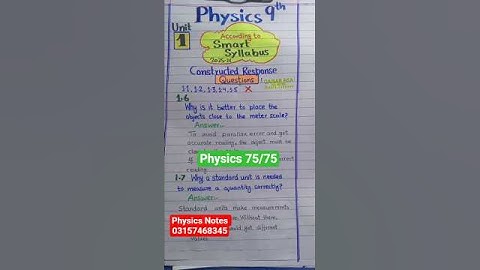 Physics 9th
Unit
1
According to
Smart
Syllabus
Constructed Response
Questions
11, 12, 13, 14, 15 X
1.6
Why is it better to place the
objects close to the meter scale?
Answer:-
To avoid parallax error and get
accurate reading, the object must be
Physics 75/75
reading.
1.7 Why a standard unit is needed
to measure a quantity correctly?
Answer:-
Standard units make measurements
Without there,
Physics Notes
03157468345
get different
values